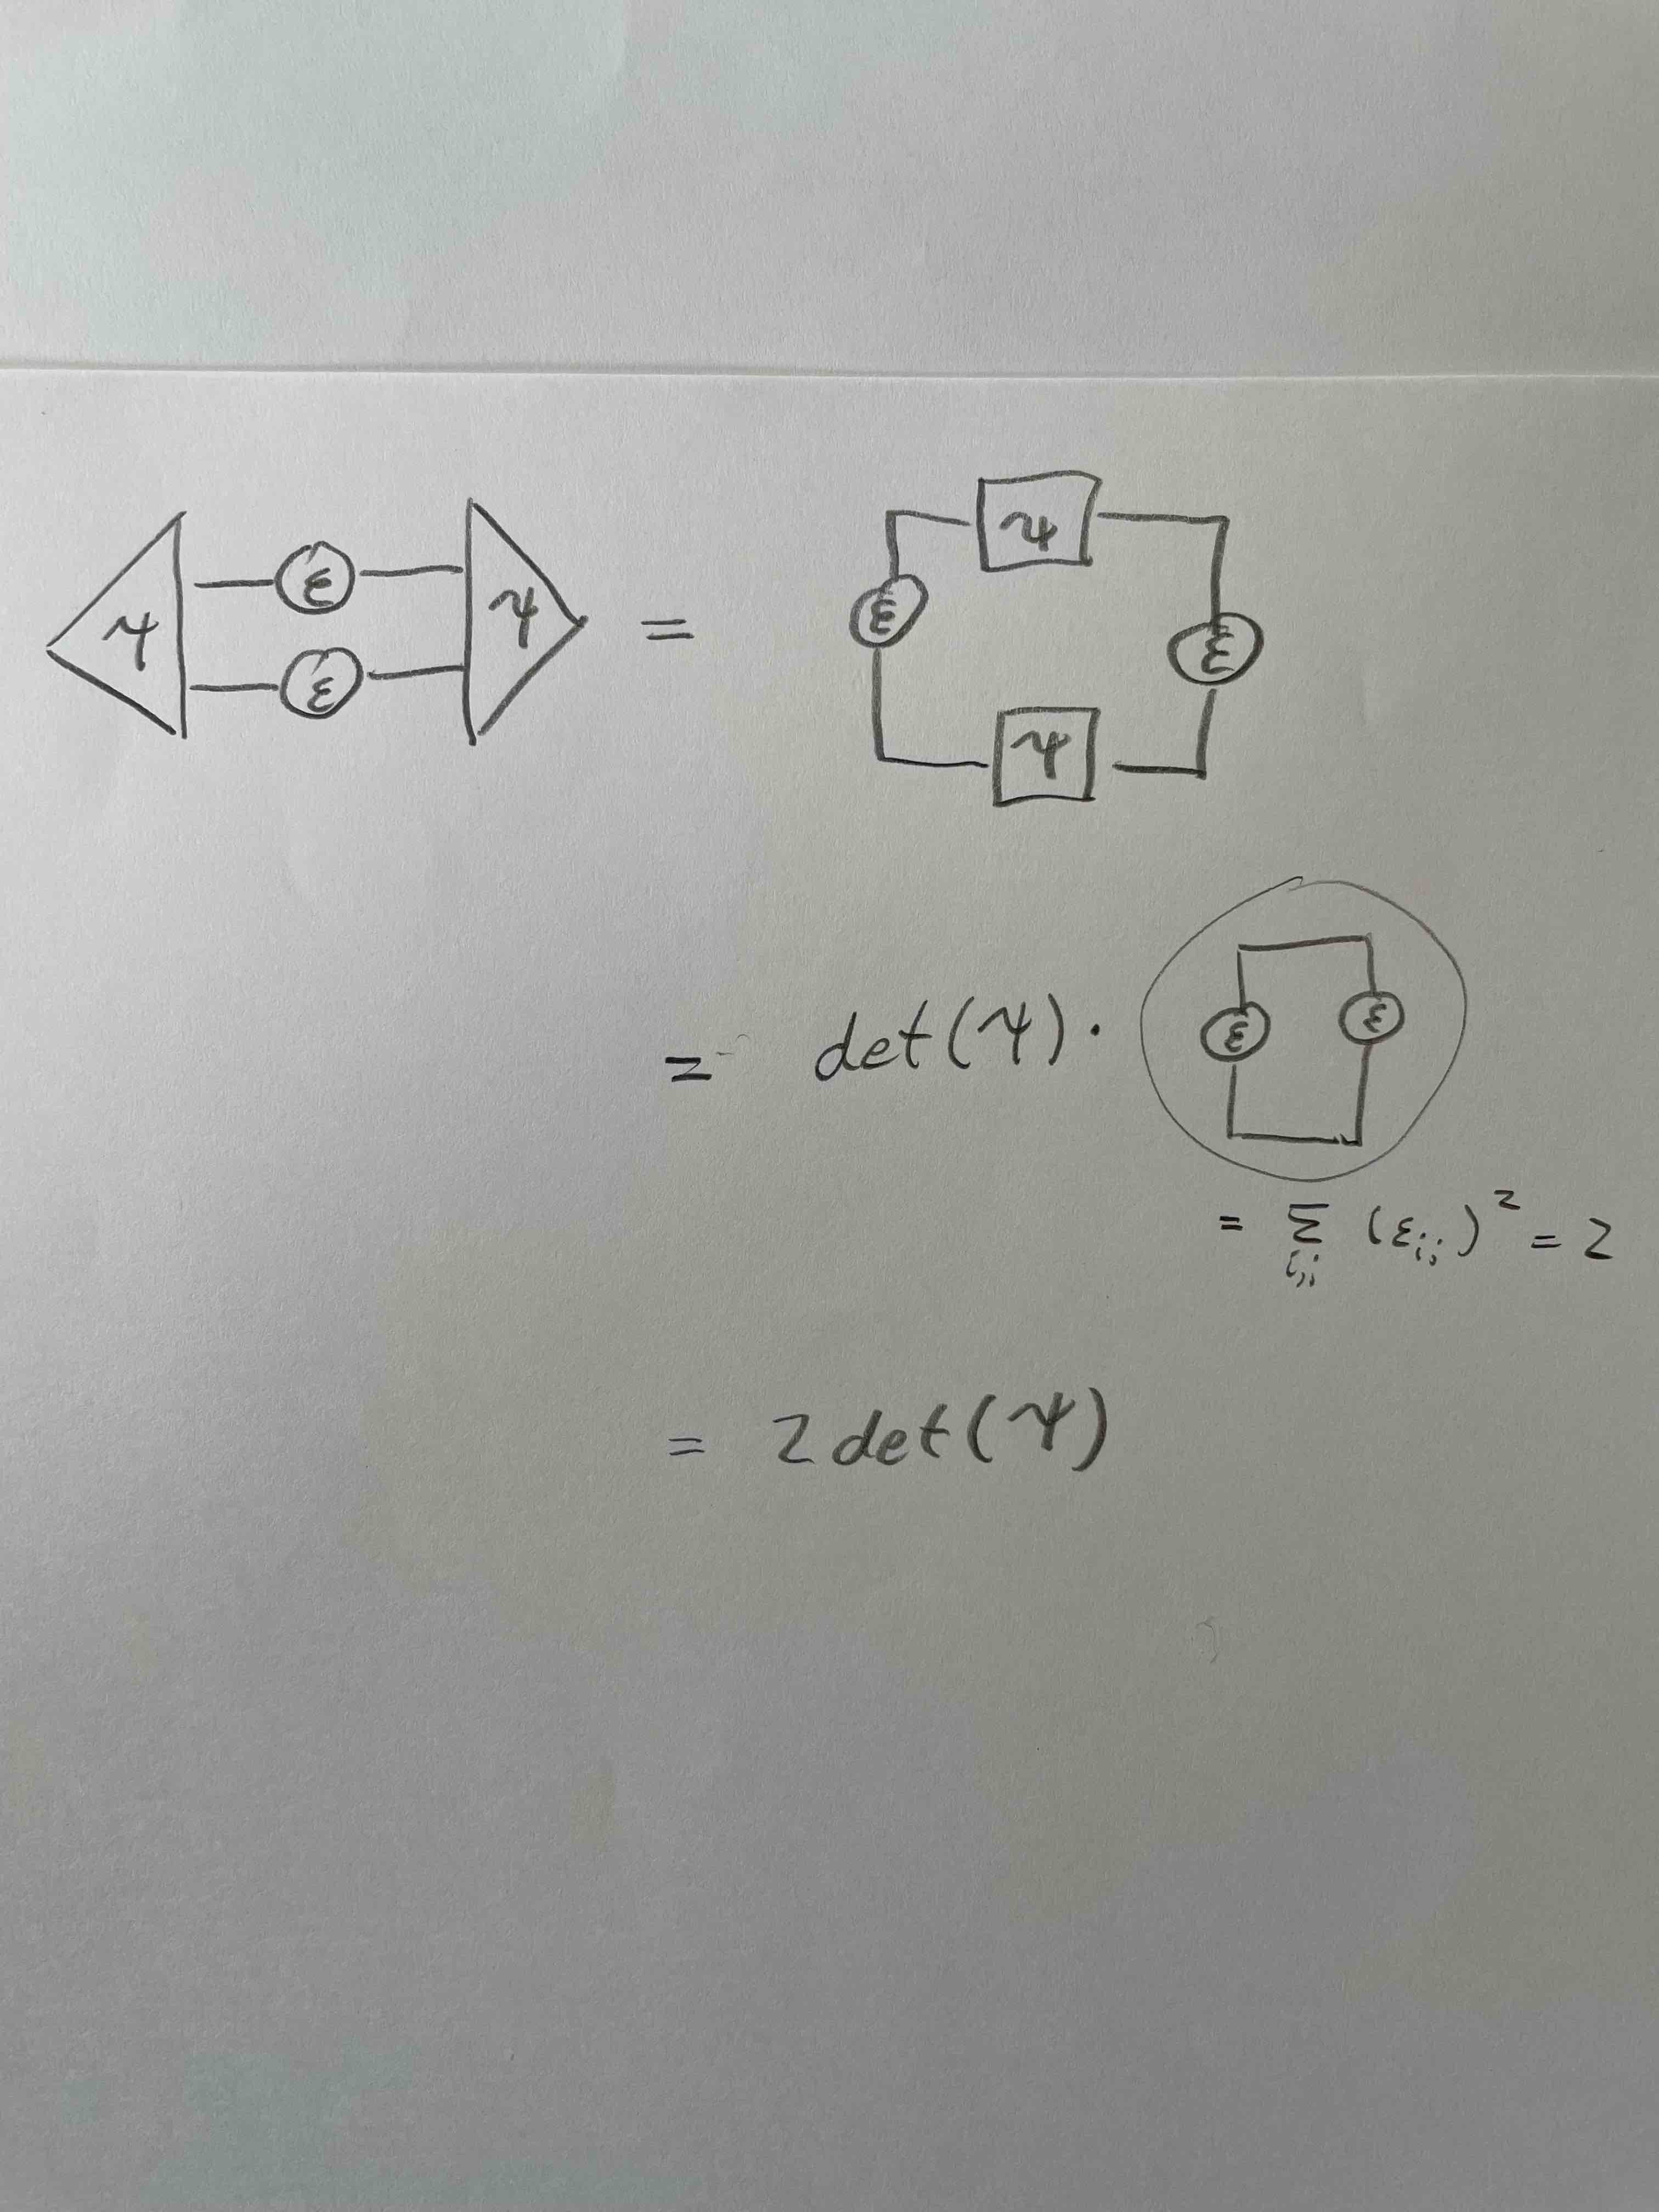 ψ ε ε ψ = ψ ε ε ψ
= det(ψ) · ε ε
= Σ i,j (ε i j)² = 2
= 2 det(ψ)